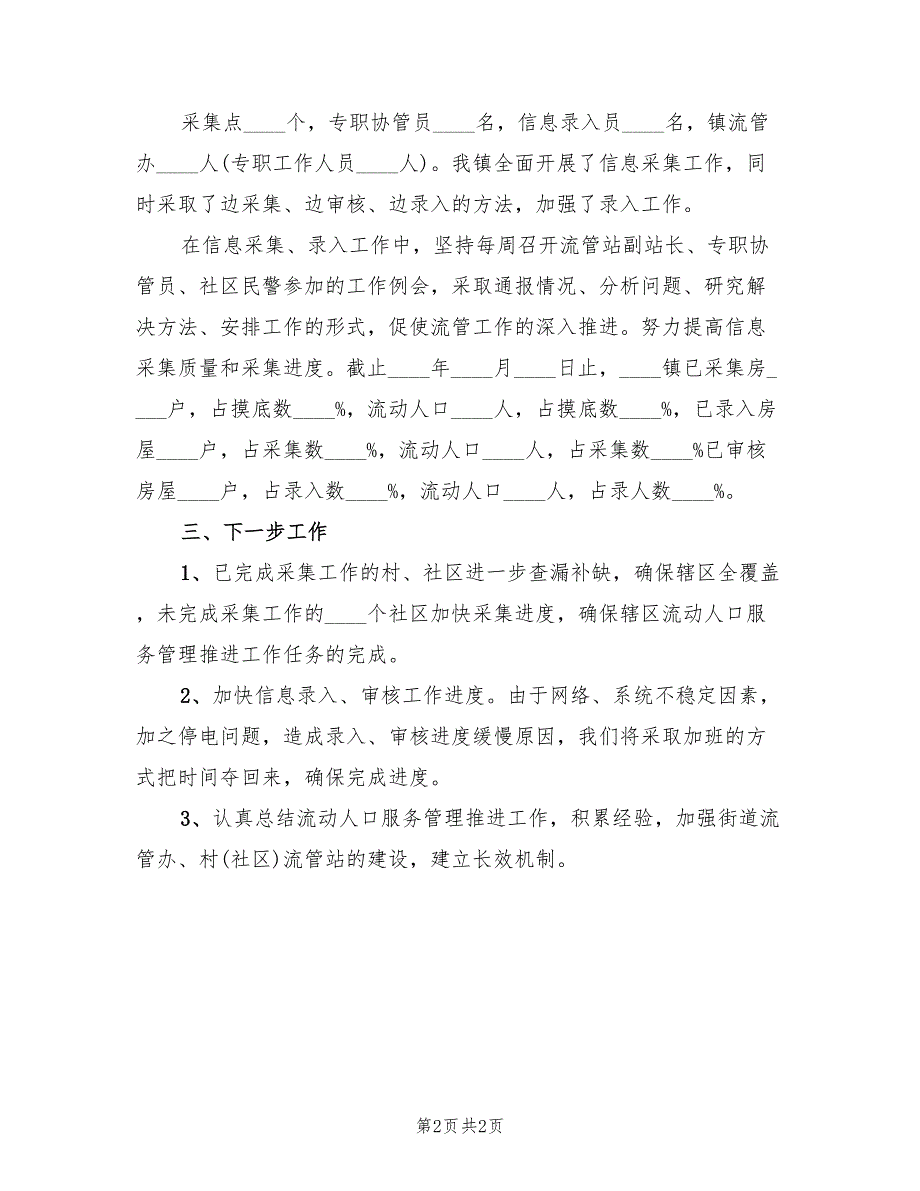 采集点____个，专职协管员____名，信息录入员____名，镇流管
办____人(专职工作人员____人)。我镇全面开展了信息采集工作，同
时采取了边采集、边审核、边录入的方法，加强了录入工作。
在信息采集、录入工作中，坚持每周召开流管站副站长、专职协
管员、社区民警参加的工作例会，采取通报情况、分析问题、研究解
决方法、安排工作的形式，促使流管工作的深入推进。努力提高信息
采集质量和采集进度。截止____年____月____日止，____镇已采集房_
___户，占摸底数____%，流动人口____人，占摸底数____%，已录入房
屋____户，占采集数____%，流动人口____人，占采集数____%已审核
房屋____户，占录入数____%，流动人口____人，占录人数____%。
三、下一步工作
1、已完成采集工作的村、社区进一步查漏补缺，确保辖区全覆盖
，未完成采集工作的____个社区加快采集进度，确保辖区流动人口服
务管理推进工作任务的完成。
2、加快信息录入、审核工作进度。由于网络、系统不稳定因素，
加之停电问题，造成录入、审核进度缓慢原因，我们将采取加班的方
式把时间夺回来，确保完成进度。
3、认真总结流动人口服务管理推进工作，积累经验，加强街道流
管办、村(社区)流管站的建设，建立长效机制。
第2页 共2页